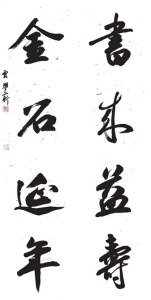 書成益壽
金石延年